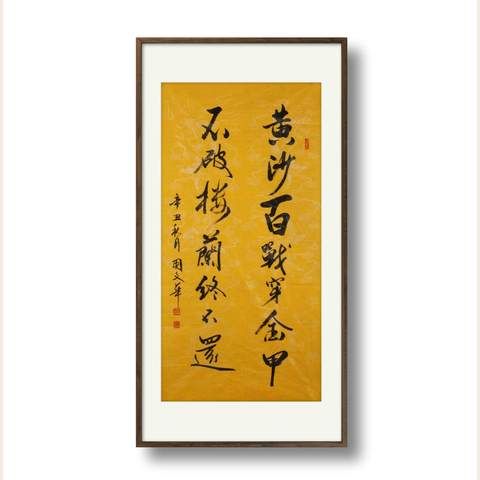 黄沙百戰穿金甲
不破楼蘭終不還
辛丑秋月 周文華